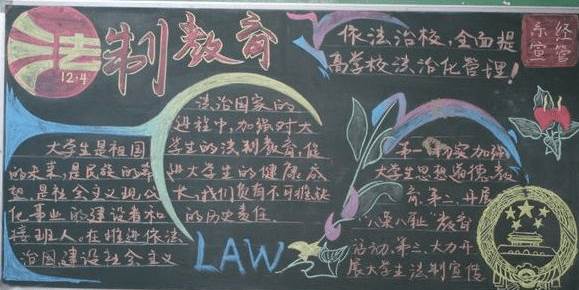 法制教育
12.4
依法治校,全面提
高学校法治化管理!
经管
系宣
大学生是祖国
的未来,是民族的希
望,是社会主义现代
化事业的建设者和
接班人。在推进依法
治国建设社会主义
法治国家的
进程中,加强对大
学生的法制教育,促
进大学生的健康成
长,我们负有不可推缷
的历史责任。
LAW
第一
加强
大学生思想道德教
育.第二.开展
"八荣八耻"教育
活动.第三.大力开
展大学生法制宣传